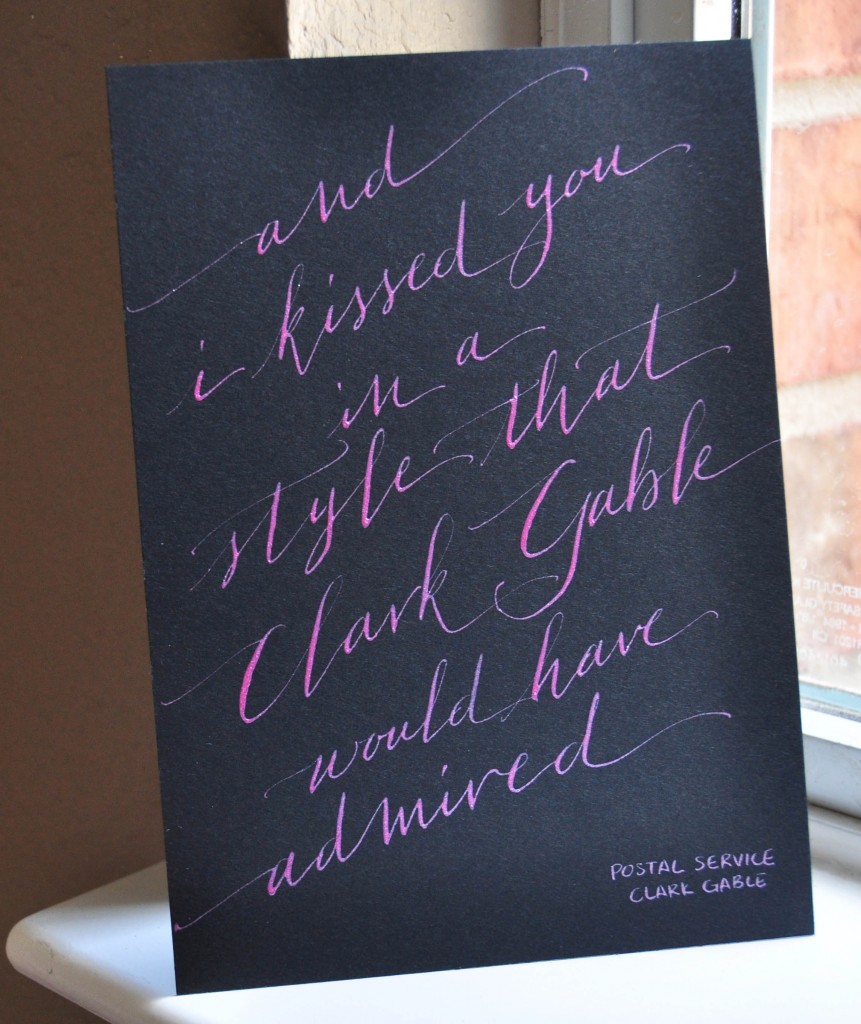 and
i kissed you
in a
style that
Clark Gable
would have
admired
POSTAL SERVICE
CLARK GABLE